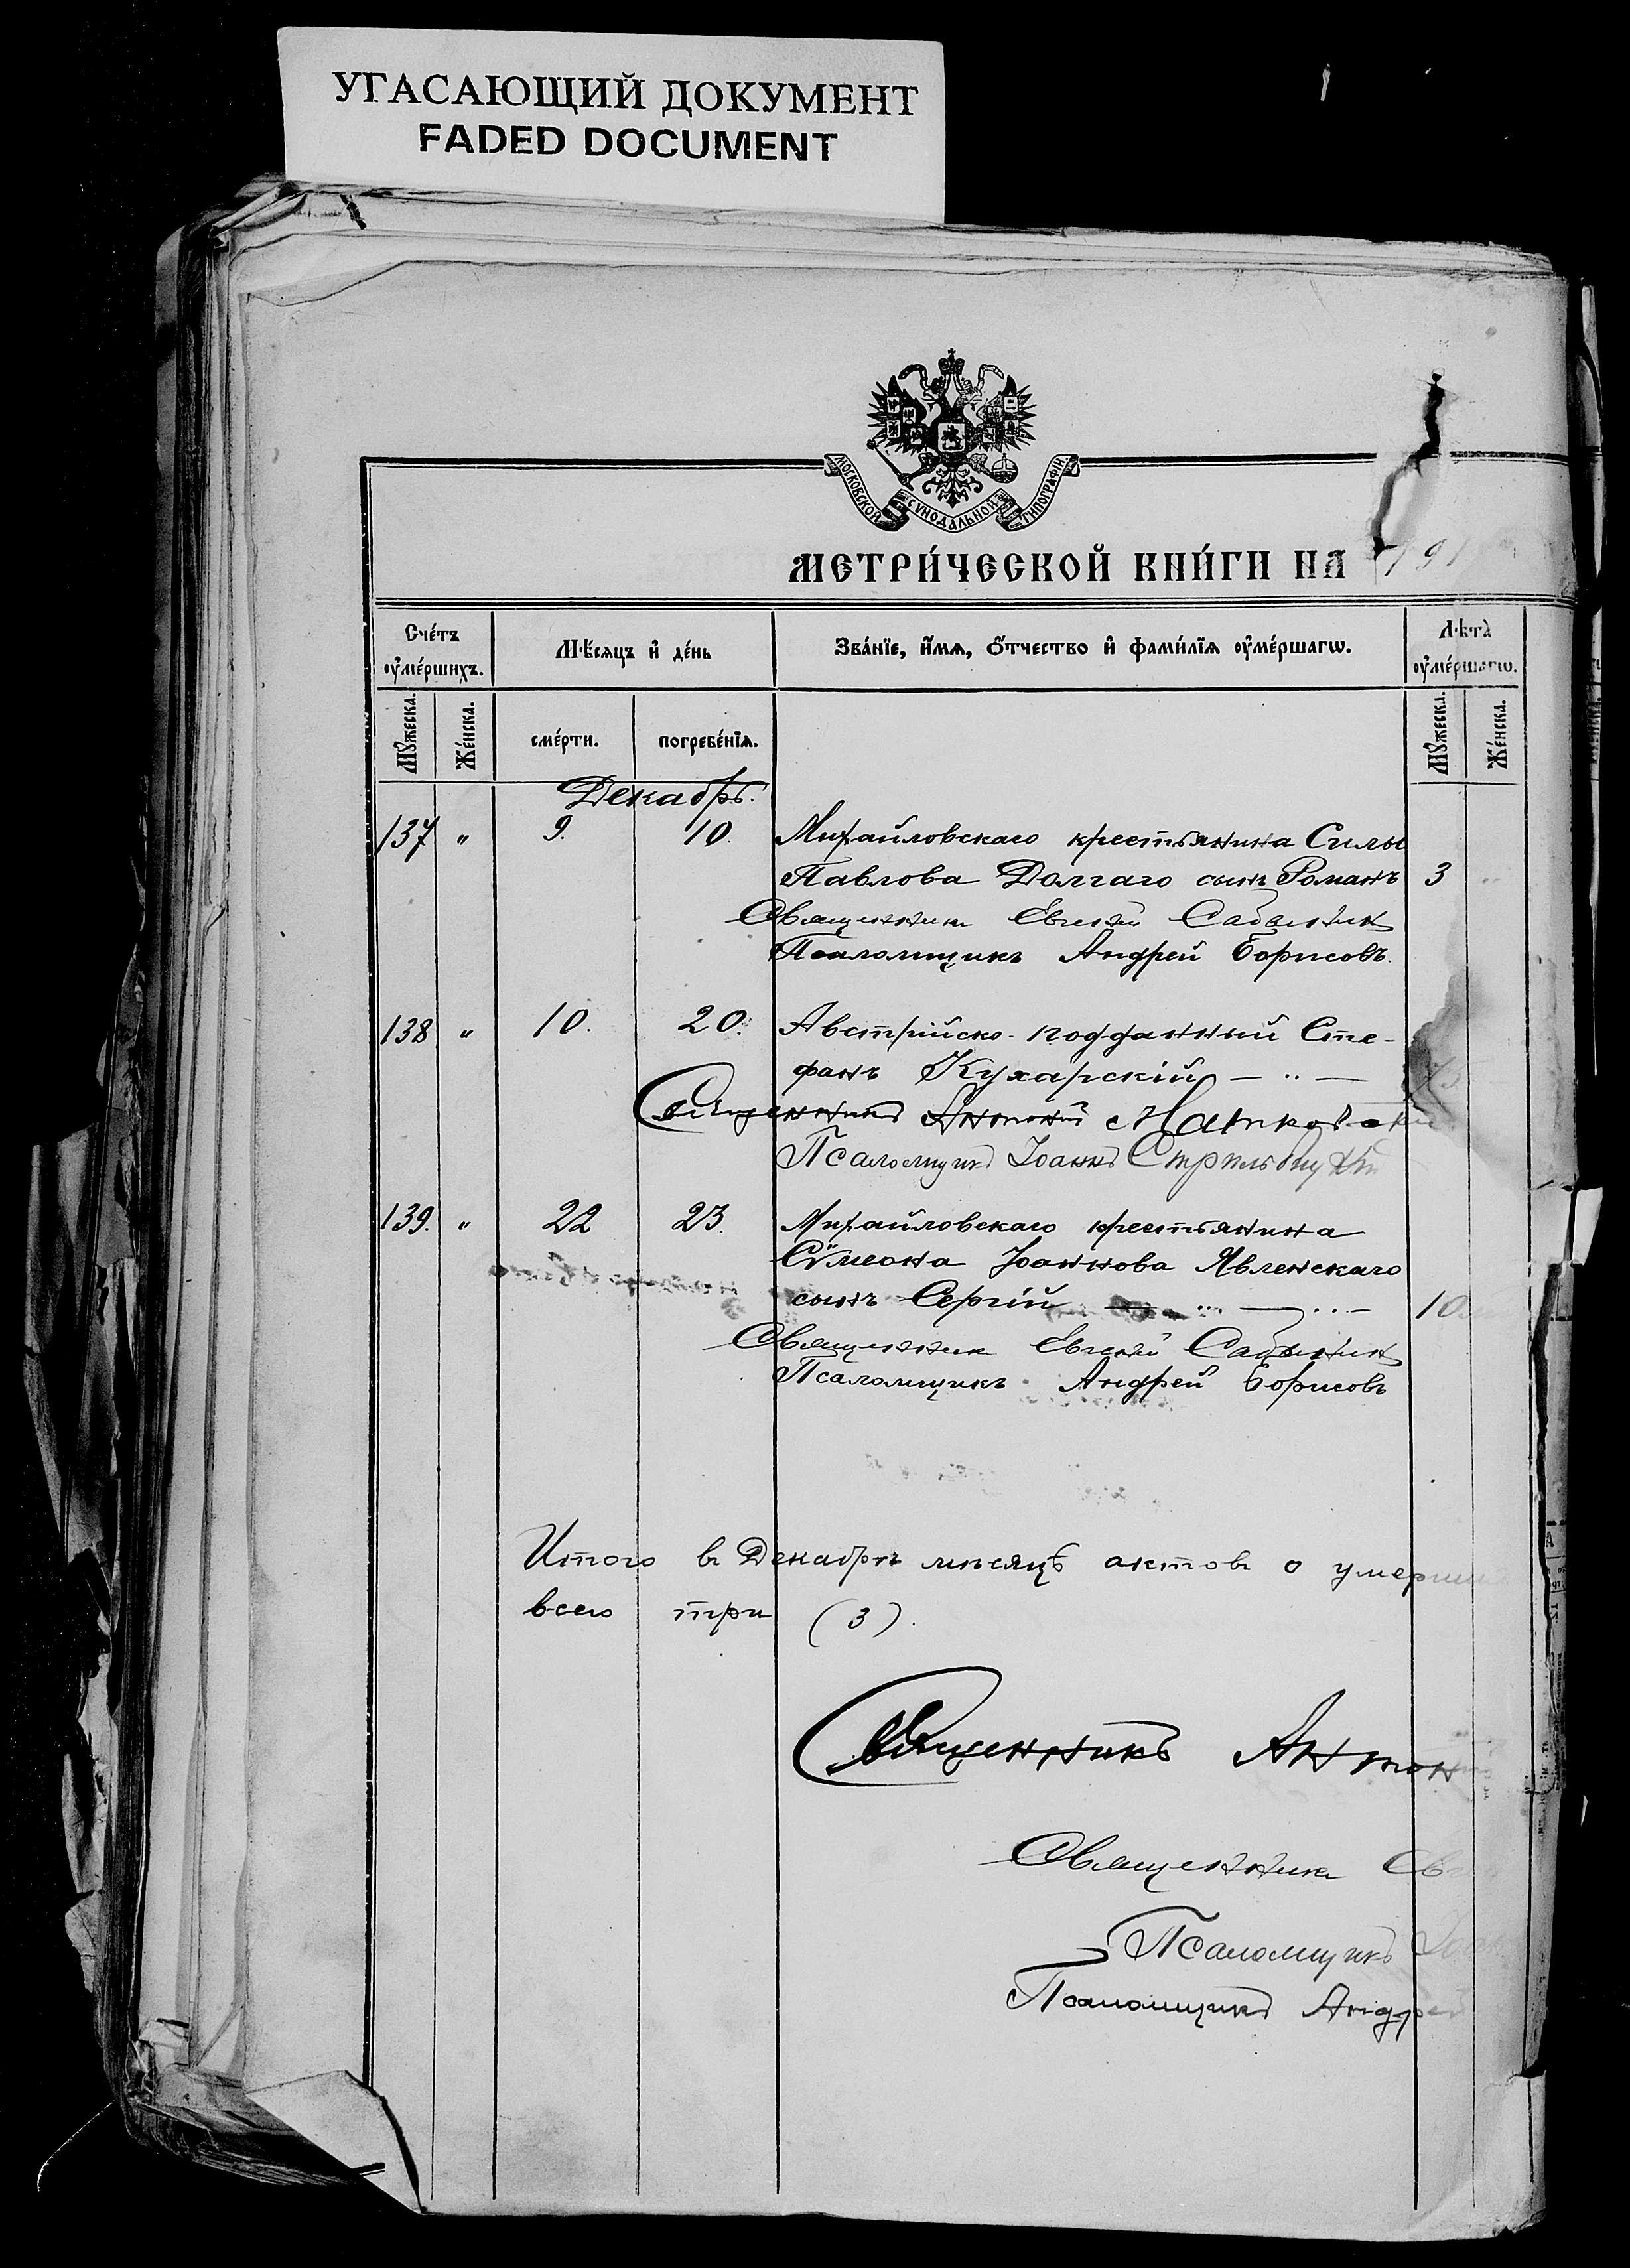 УГАСАЮЩИЙ ДОКУМЕНТ
FADED DOCUMENT
МОСКОВСКОЙ СѴНОДАЛЬНОЙ ТИПОГРАФІИ
МЕТРИ́ЧЕСКОЙ КНИ́ГИ НА 191
Сче́тъ ᲂу҆ме́ршихъ.
Мѣ́сяцъ и҆ де́нь
Зва́нїе, и҆́мѧ, ѻ҆́тчество и҆ фами́лїѧ ᲂу҆ме́ршагѡ.
Лѣта̀ ᲂу҆ме́ршагѡ.
Мꙋ́жеска. Же́нска. сме́рти. погребе́нїѧ. Мꙋ́жеска. Же́нска.
Декабрь.
137 " 9. 10. Михайловскаго крестьянина Силы
Павлова Долгаго сынъ Романъ 3 "
Священникъ Евгеній
Псаломщикъ Андрей Борисовъ.
138 " 10. 20. Австрійско-подданный Сте-
фанъ Кухарскій — " —
Священникъ Антоній
Псаломщикъ Іоаннъ
139. " 22 23. Михайловскаго крестьянина
Сѵмеона Іоаннова Явленскаго
сынъ Сергій — " — " — 10
Священникъ Евгеній
Псаломщикъ Андрей Борисовъ
Итого въ Декабрѣ мѣсяцѣ актовъ о умерш
всего три (3).
Священникъ Антон
Священникъ Ев
Псаломщикъ Іоан
Псаломщикъ Андрей